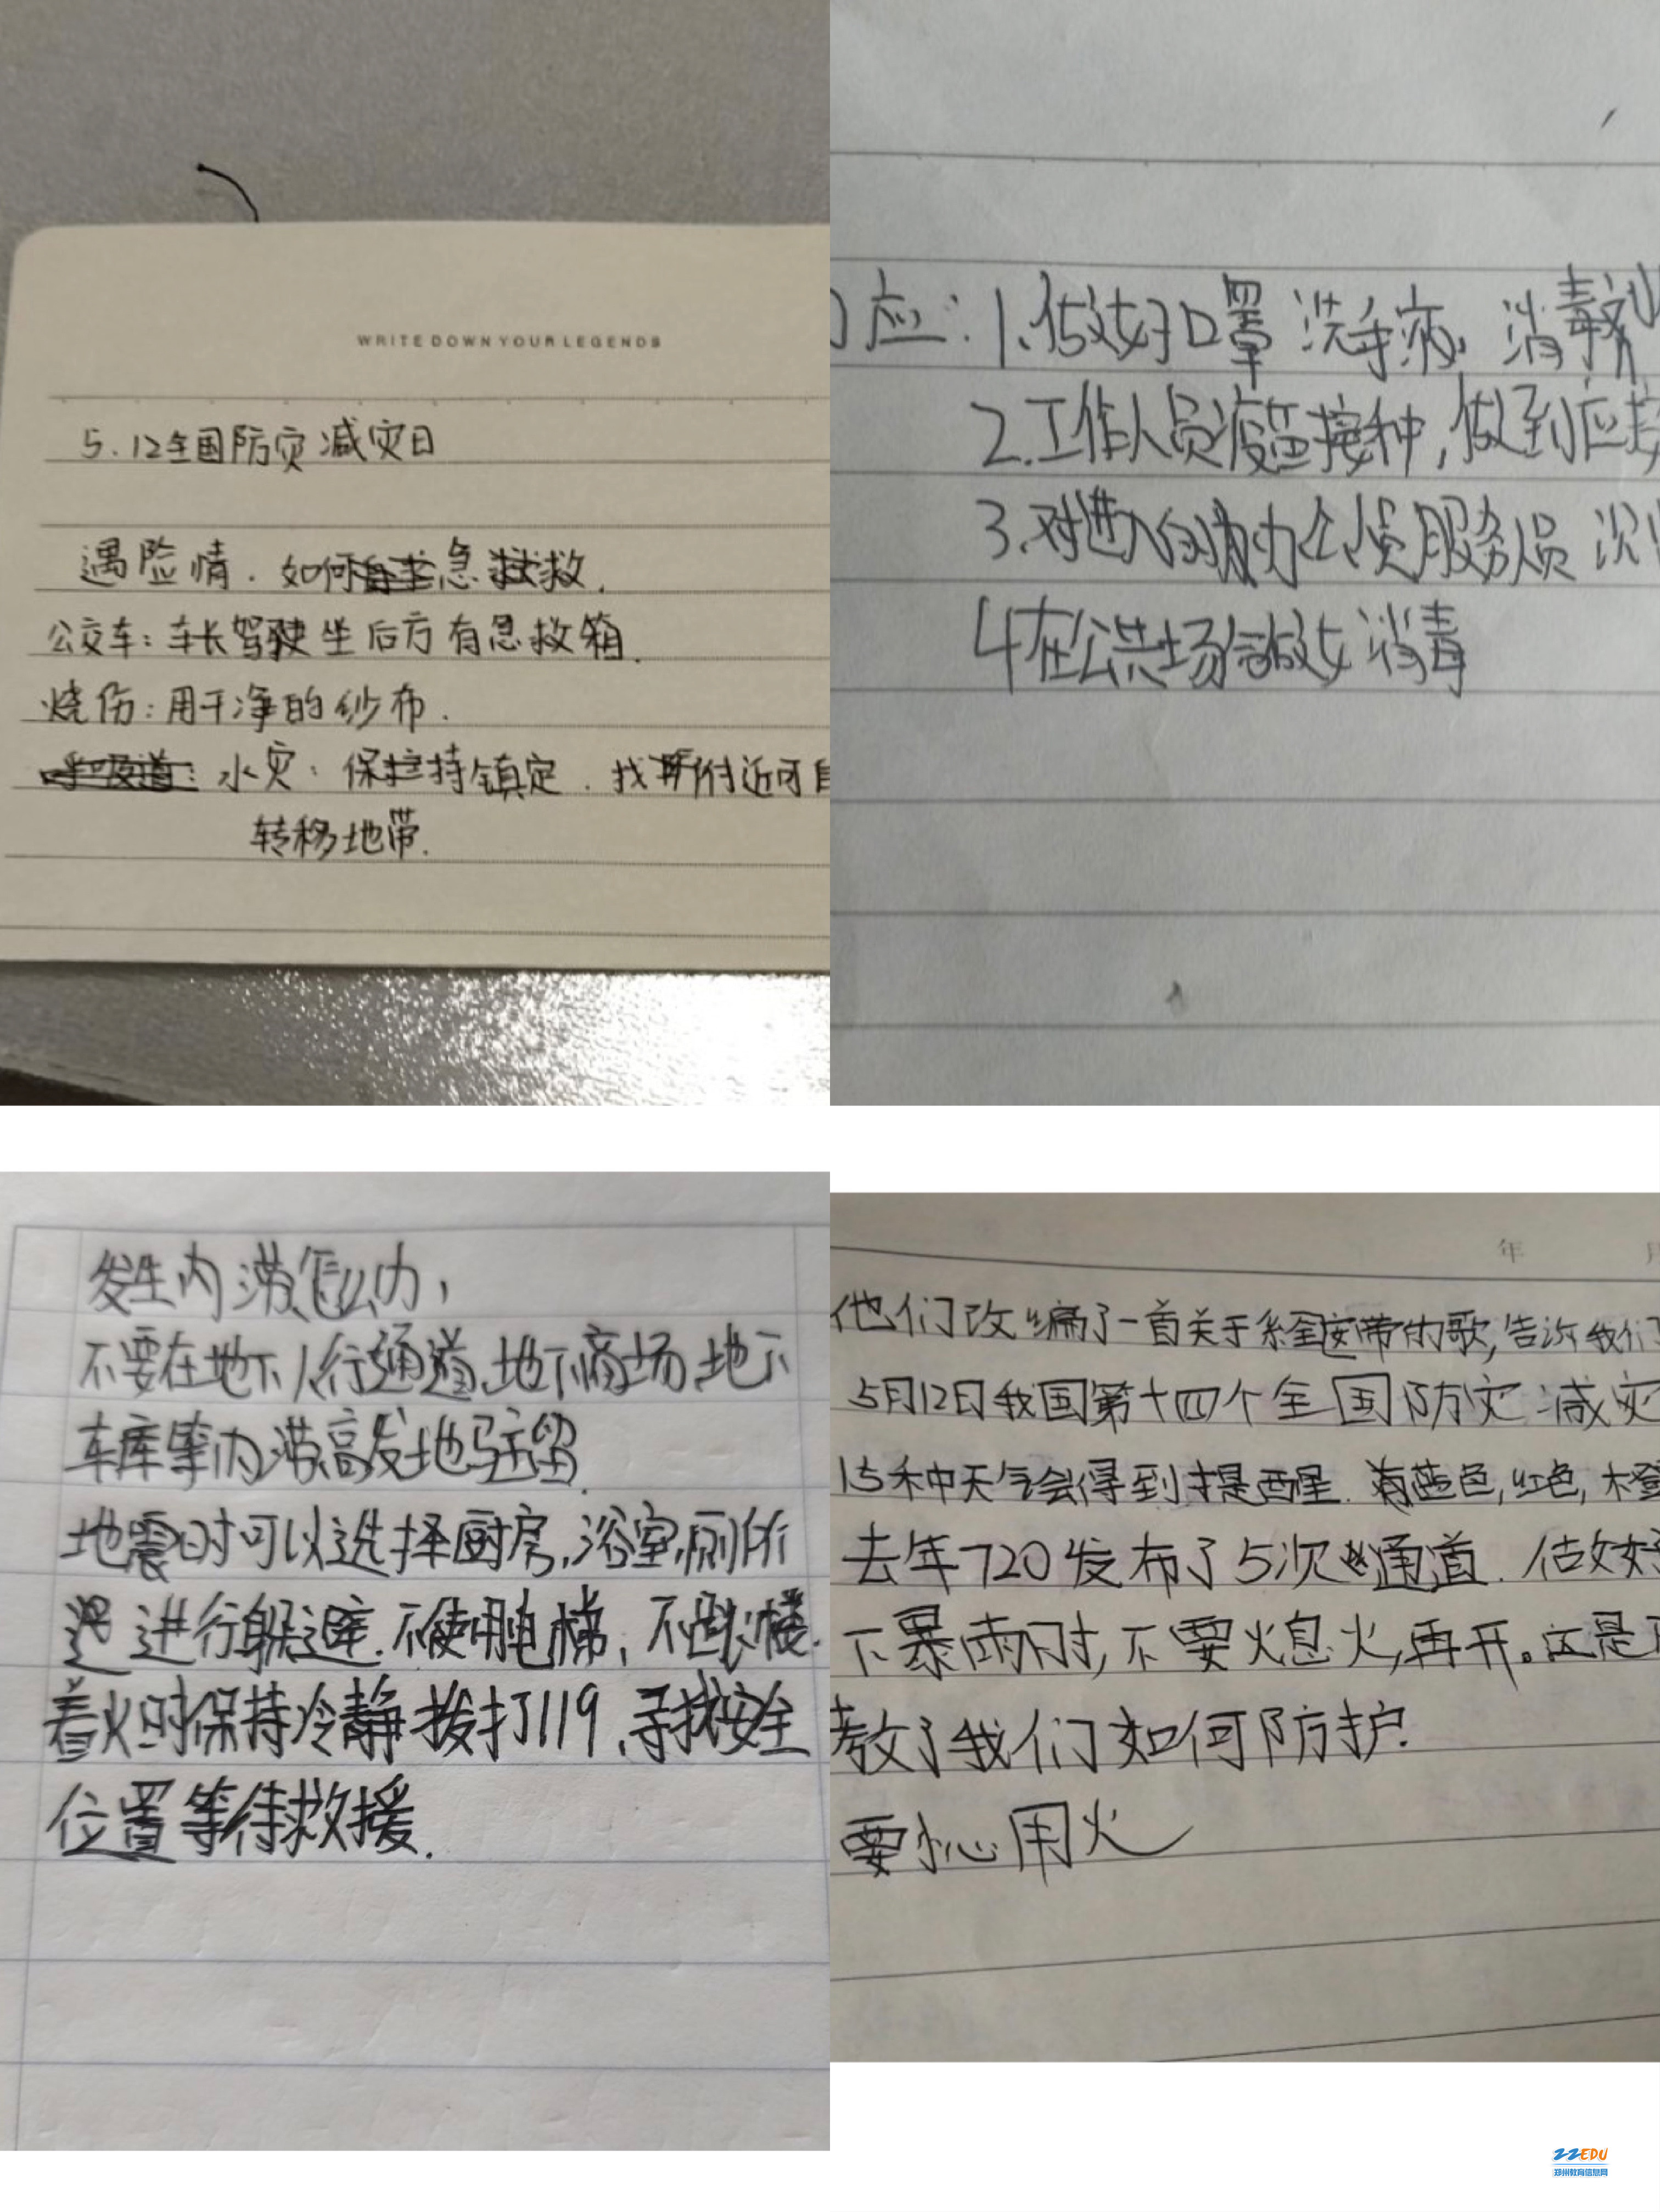 WRITE DOWN YOUR LEGENDS
5.12全国防灾减灾日
遇险情.如何急救.
公交车:车长驾驶坐后方有急救箱.
烧伤:用干净的纱布.
水灾:保持镇定.找附近可自
转移地带.
应:1.做好口罩 洗手液,消毒
2.工作人员疫苗接种,做到应接
3.对进入的 服务员
4在公共场 消毒
发生内涝怎么办,
不要在地下人行通道,地下商场,地下
车库等内涝高发地驻留.
地震时可以选择厨房,浴室,厕所
进行躲避.不使用电梯,不跳楼.
着火时保持冷静拨打119,寻找安全
位置等待救援.
年 月
他们改编了一首关于系安全带的歌,告诉我们
5月12日我国第十四个全国防灾减灾
15种天气会得到提醒.有蓝色,红色,橙
去年720发布了5次通道.做好
下暴雨时,不要熄火,再开。这是
教了我们如何防护.
要小心用火
ZZEDU
郑州教育信息网